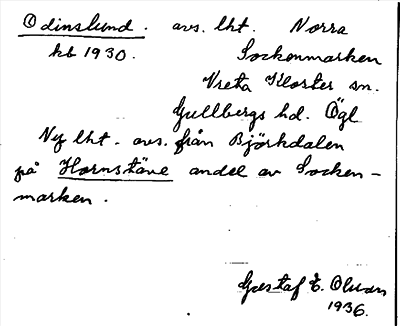 Odinslund. avs. lht. Norra
kb 1930. Sockenmarken
Vreta Kloster sn.
Gullbergs hd. Ögl.
Ny lht. avs. från Björkdalen
på Hornstäve andel av Socken-
marken.
Gustaf E. Olsson
1936.